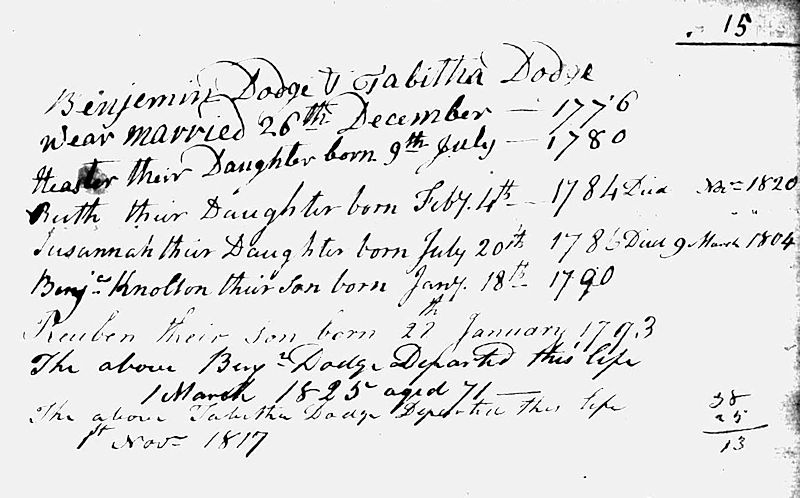 15
Benjemin Dodge & Tabitha Dodge
Wear married 26th December — 1776
Heaster their Daughter born 9th July — 1780
Ruth thier Daughter born Feby. 4th - 1784 Died Novr 1820
Susannah thier Daughter born July 20th 178 Died 9 March 1804
Benjn Knolton thier Son born Jany. 18th 1790
Reuben their son born 27th January 1793
The above Benjn Dodge Departed this life
1 March 1825 aged 71 —
The above Tabitha Dodge Departed this life
1st Novr 1817
38
25
13